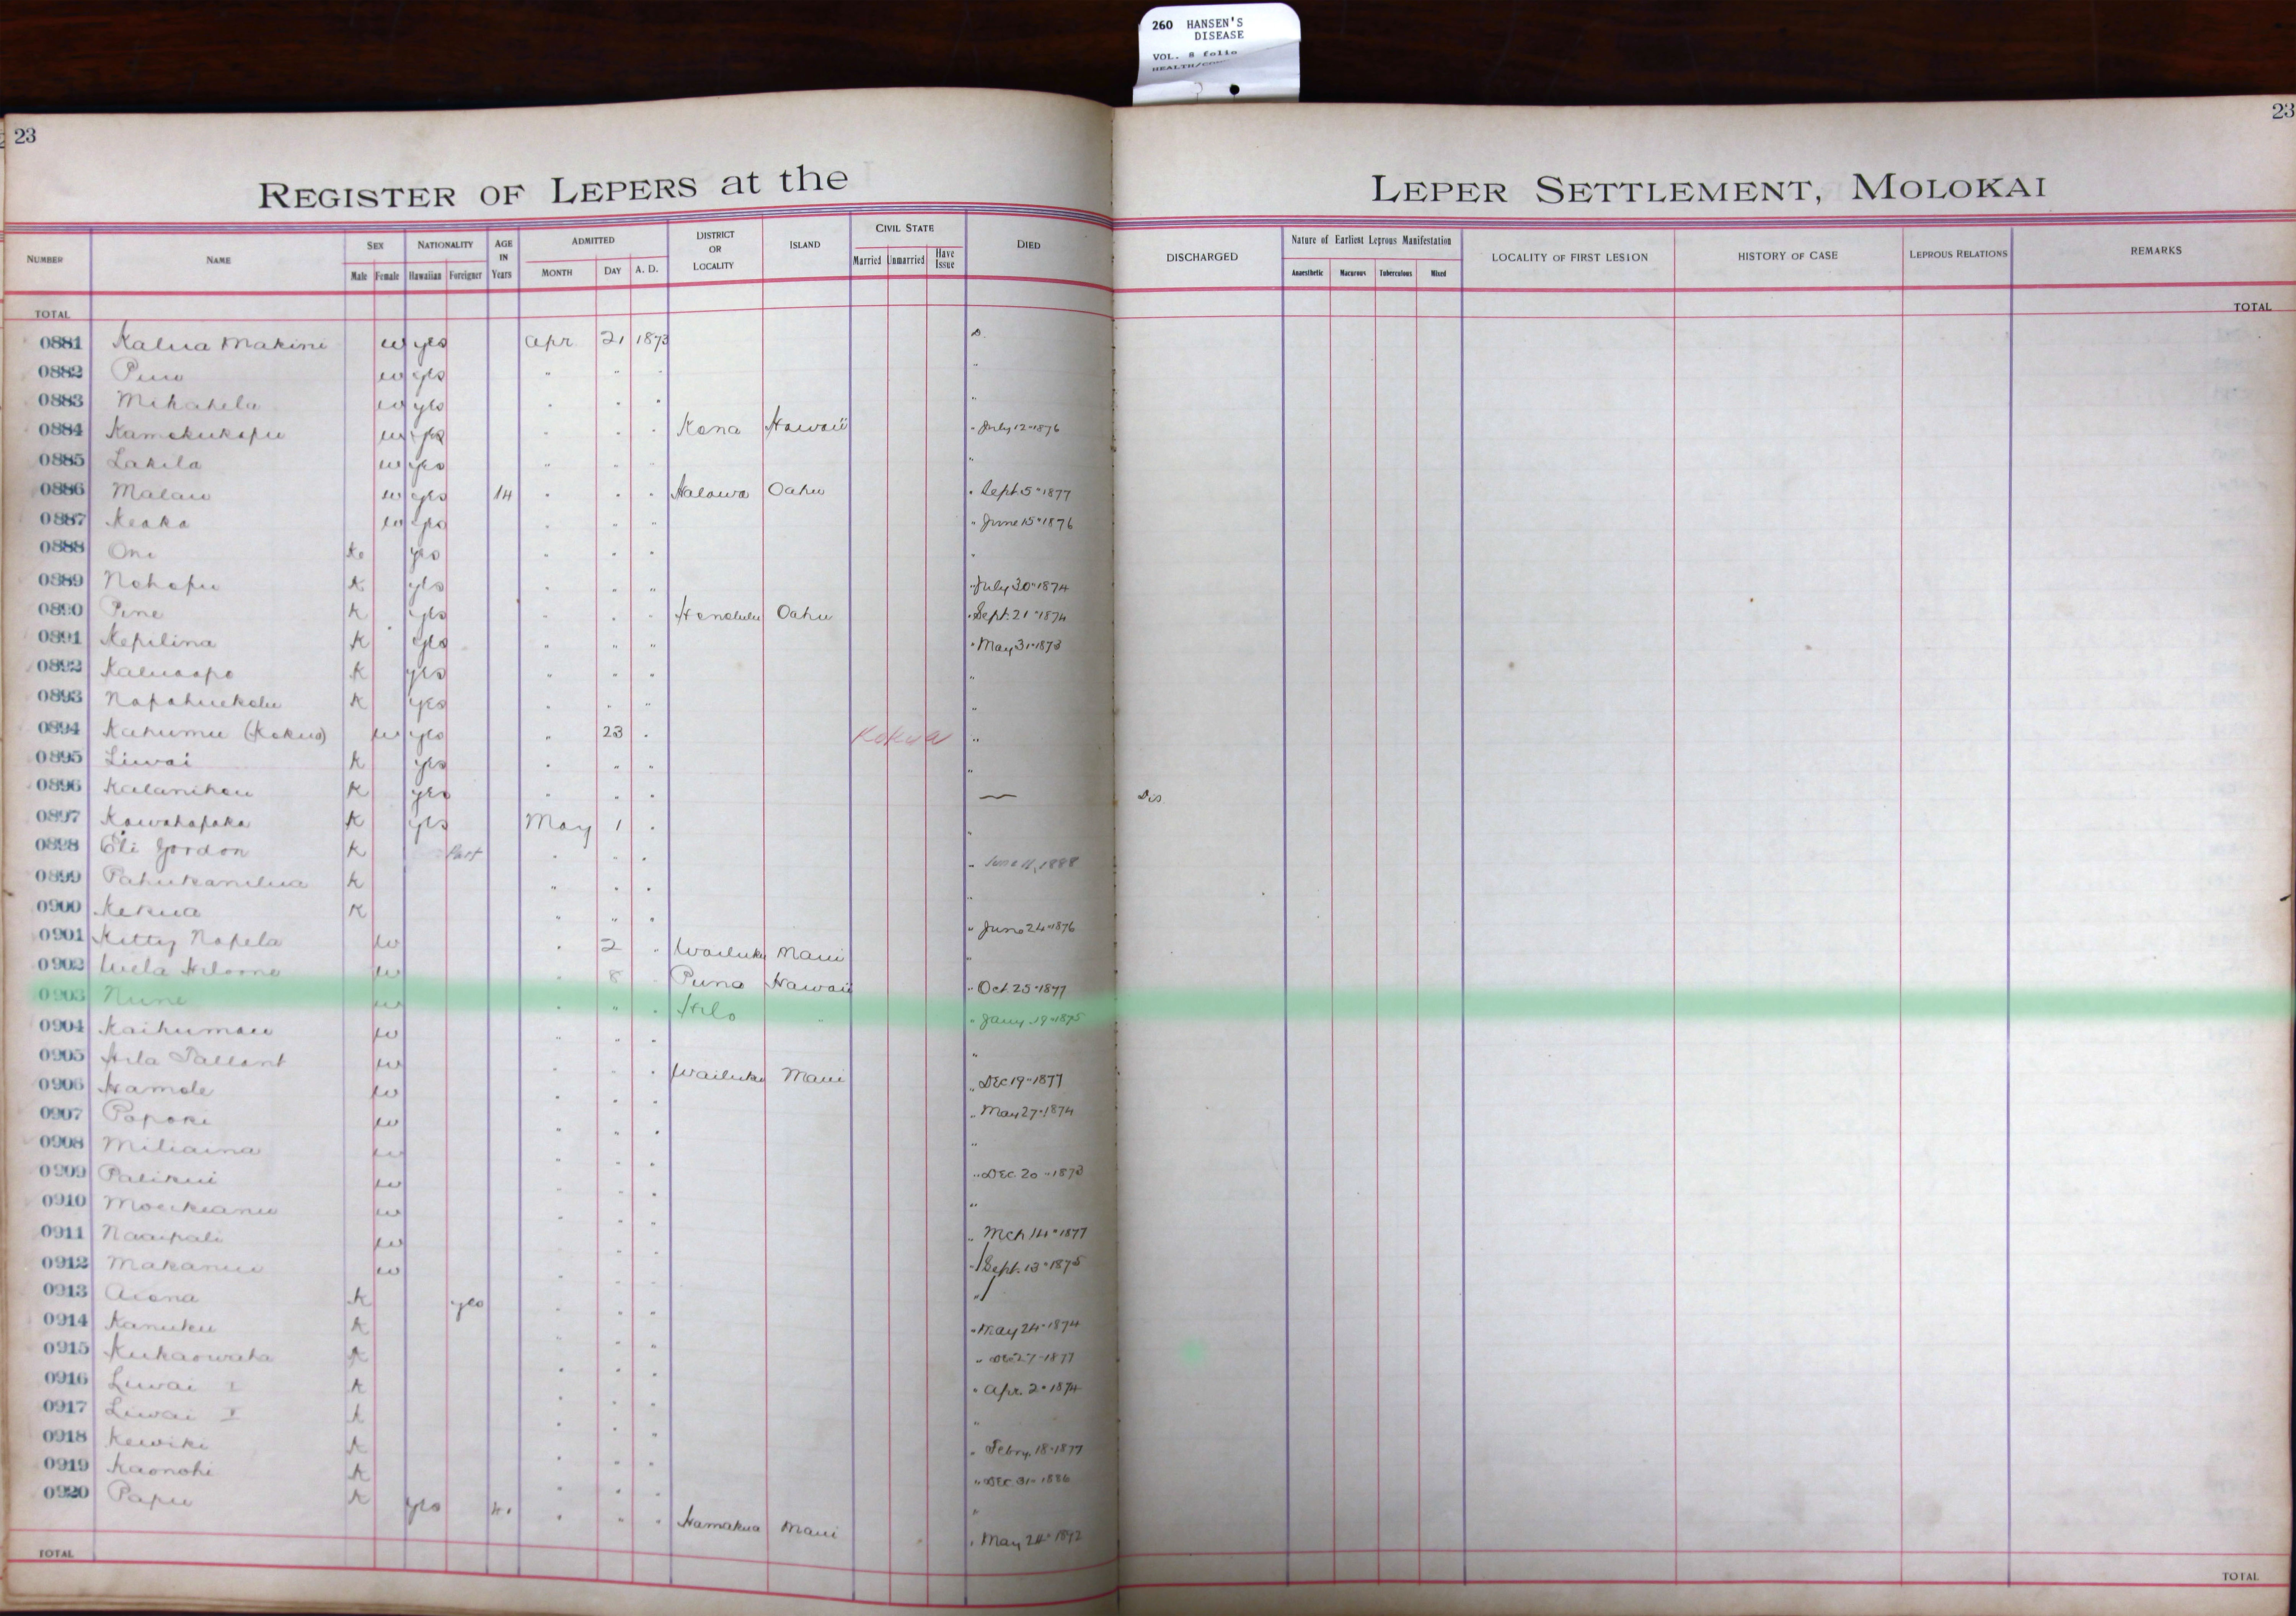 260 HANSEN'S
DISEASE
VOL. 8 folio
23
23
REGISTER OF LEPERS at the LEPER SETTLEMENT, MOLOKAI
NUMBER NAME SEX NATIONALITY AGE IN Years ADMITTED DISTRICT OR LOCALITY ISLAND CIVIL STATE DIED DISCHARGED Nature of Earliest Leprous Manifestation LOCALITY OF FIRST LESION HISTORY OF CASE LEPROUS RELATIONS REMARKS
Male Female Hawaiian Foreigner MONTH DAY A. D. Married Unmarried Have Issue Anaesthetic Macurous Tuberculous Mixed
TOTAL TOTAL
0881 Kalua Makini w yes Apr 21 1873 D.
0882 w yes " " " "
0883 Mikahela w yes " " " "
0884 Kamokukapu w yes " " " Kona Hawaii " July 12" 1876
0885 Lakila w yes " " " "
0886 Malau w yes 14 " " " Halawa Oahu " Sept. 5" 1877
0887 Keaka w yes " " " " June 15" 1876
0888 K yes " " " "
0889 Nohopu K yes " " " " July 30" 1874
0890 Pine K yes " " " Honolulu Oahu " Sept. 21" 1874
0891 Kepilina K yes " " " " May 31" 1873
0892 Kaluaapo K yes " " " "
0893 Napahuekolu K yes " " " "
0894 Kahumu (Kokua) w yes " 23 " Kokua "
0895 Liwai K yes " " " "
0896 Kalanihou K yes " " " — Dis
0897 Kawahapaka K yes May 1 " "
0898 Eli Gordon K Part " " " " June 11, 1888
0899 Pahukanilua K " " " "
0900 Kekua K " " " " June 24" 1876
0901 Kitty Napela w " 2 " Wailuku Maui "
0902 w " 8 Puna Hawaii " Oct. 25" 1877
0903 Nune w " " " Hilo " " Jany. 19" 1875
0904 Kaihumau w " " " "
0905 Hila Tallant w " " " Wailuku Maui " Dec 19" 1877
0906 Kamole w " " " " May 27" 1874
0907 Papoki w " " " "
0908 Miliaina w " " " " Dec. 20" 1873
0909 Palikui w " " " "
0910 Moeikeanu w " " " " Mch 14" 1877
0911 Naaipali w " " " " Sept. 13" 1875
0912 Makanui w " " " "
0913 Aiona K yes " " " " May 24" 1874
0914 Kanuku K " " " Dec 27" 1877
0915 Kukaowaha K " " " " Apr. 2" 1874
0916 Liwai I K " " " "
0917 Liwai K " " " " Febry. 18" 1877
0918 Kewiki K " " " " Dec. 31" 1886
0919 Kaonohi K " " " "
0920 Papu K yes " " " Hamakua Maui " May 24" 1892
TOTAL TOTAL